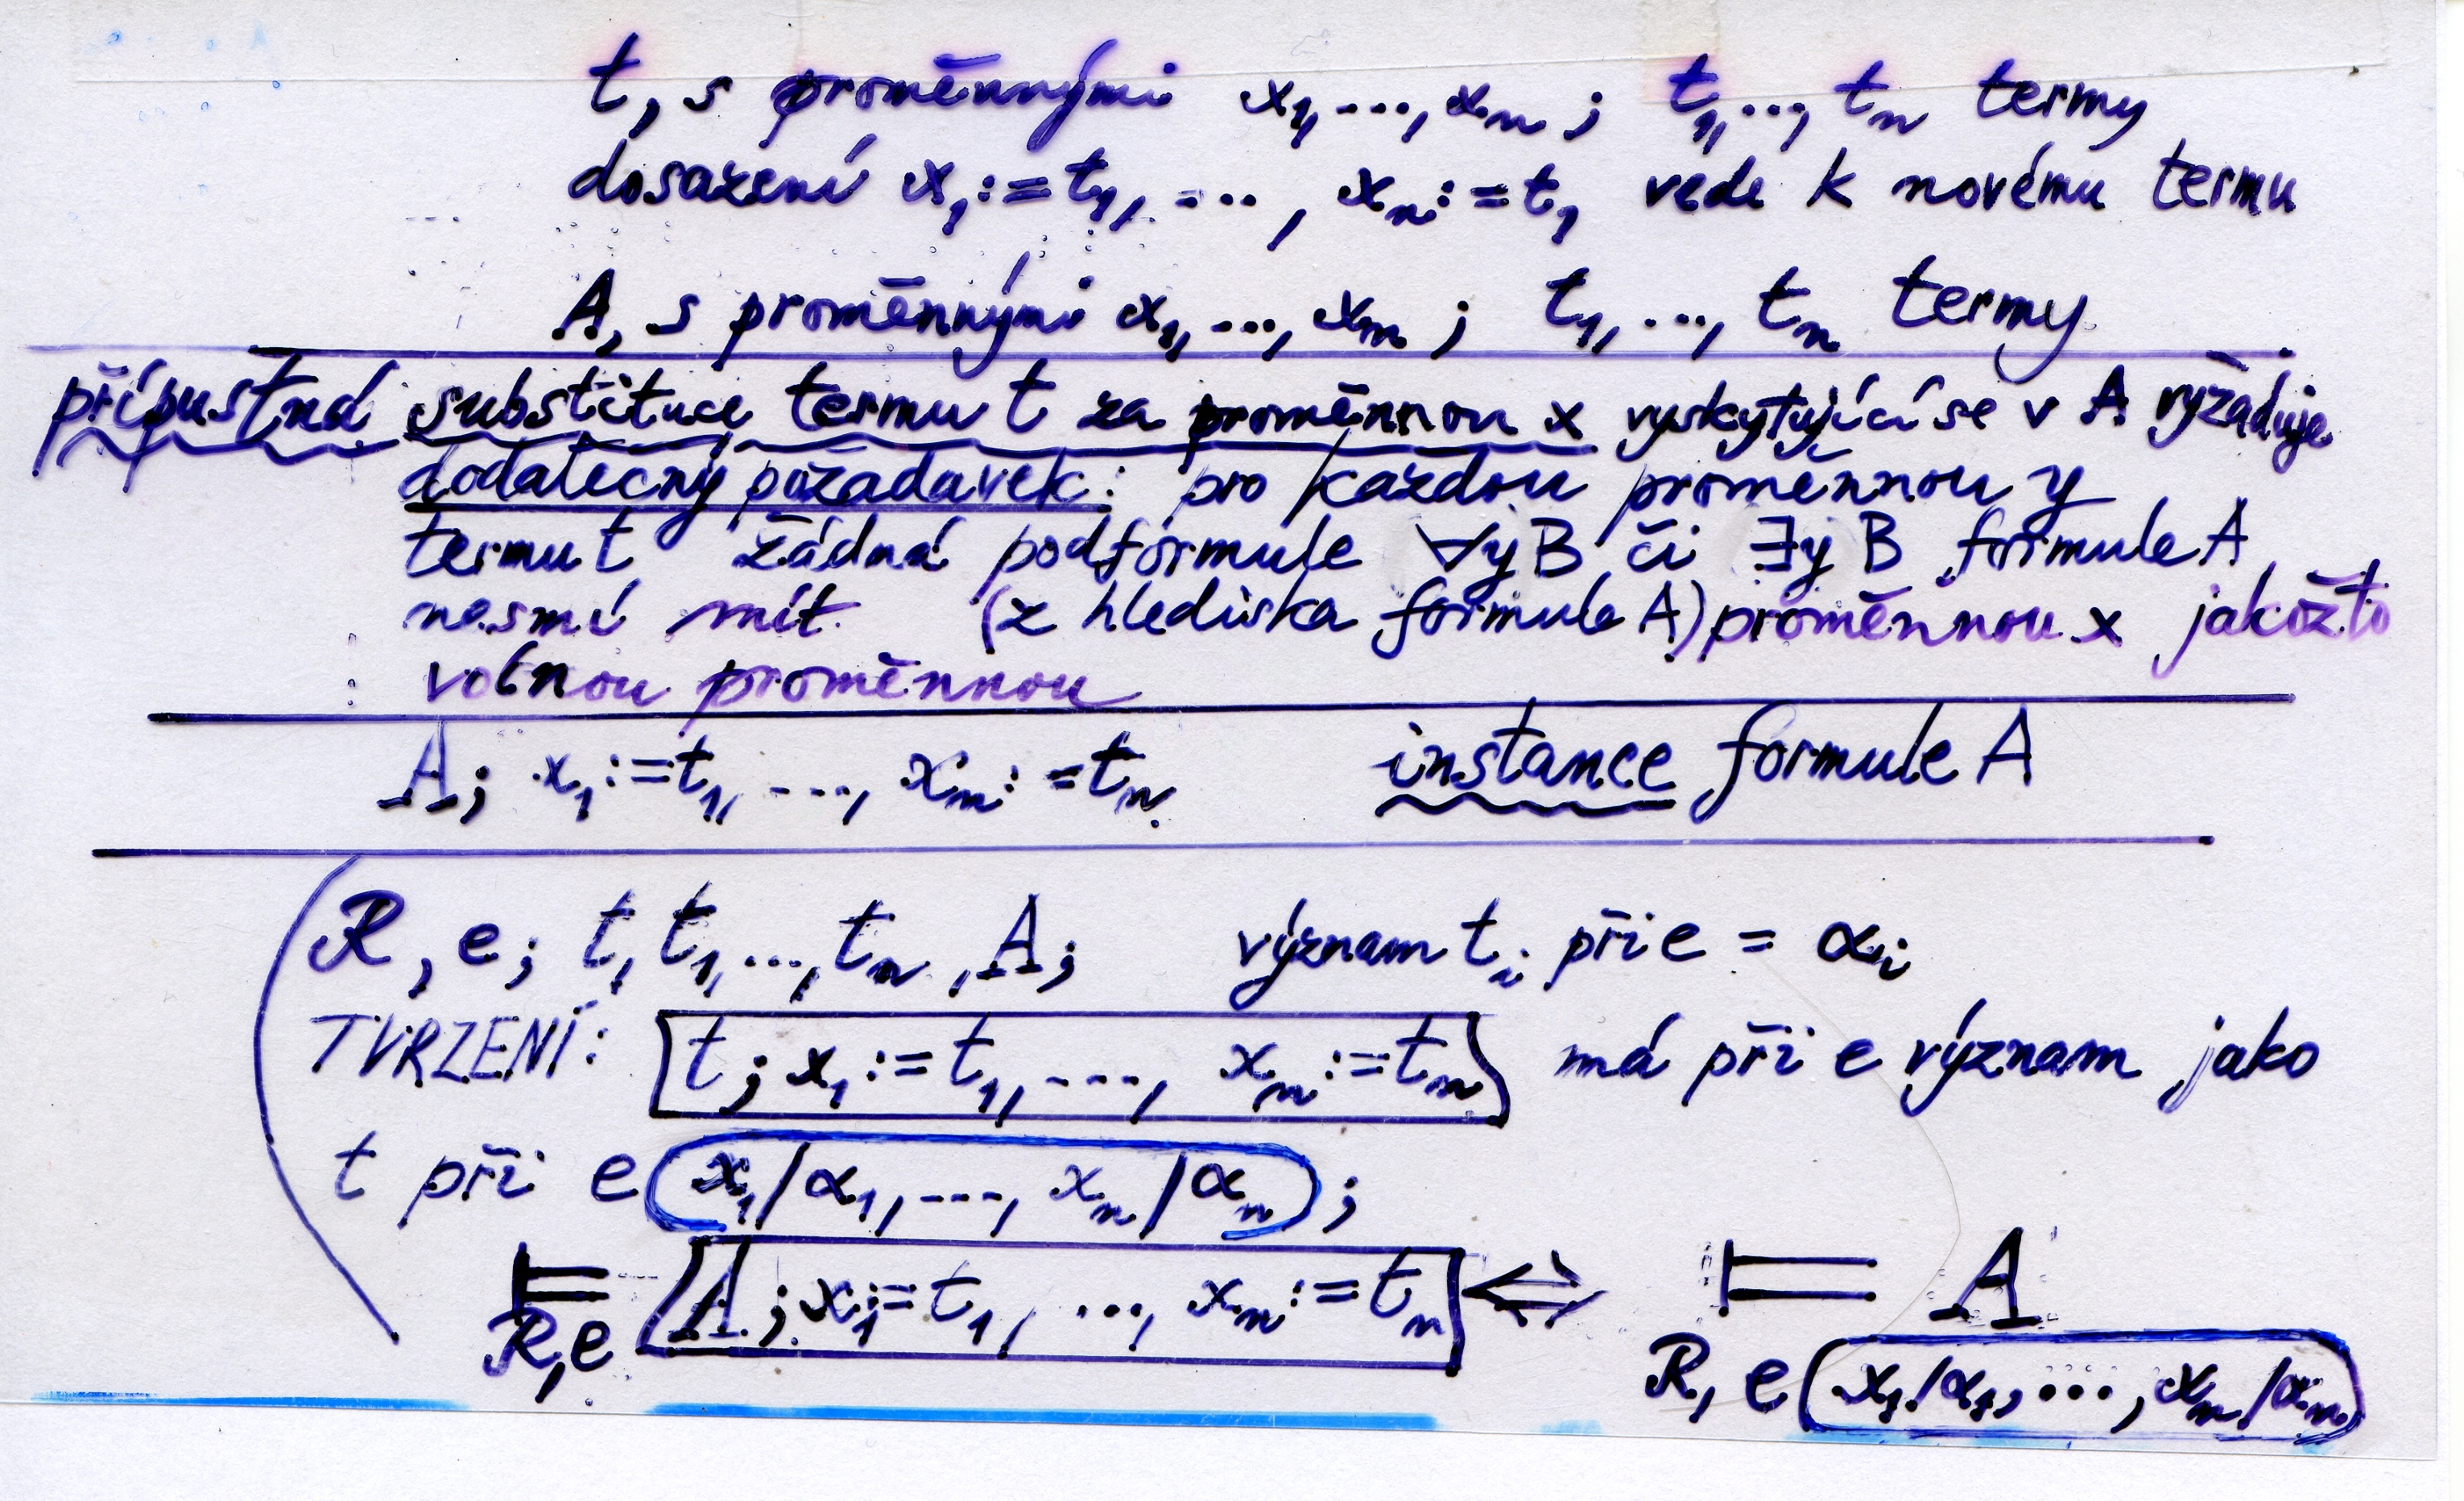 t, s proměnnými x₁, ..., xₙ ; t₁, ..., tₙ termy
dosazení x₁:=t₁, ..., xₙ:=t₁ vede k novému termu
A, s proměnnými x₁, ..., xₙ ; t₁, ..., tₙ termy
přípustná substituce termu t za proměnnou x vyskytující se v A vyžaduje
dodatečný požadavek: pro každou proměnnou y
termu t žádná podformule ∀y B či ∃y B formule A
nesmí mít (z hlediska formule A) proměnnou x jakožto
volnou proměnnou
A; x₁:=t₁, ..., xₙ:=tₙ instance formule A
R, e; t, t₁, ..., tₙ, A; význam tᵢ při e = αᵢ
TVRZENÍ: t; x₁:=t₁, ..., xₙ:=tₙ má při e význam jako
t při e(x₁/α₁, ..., xₙ/αₙ);
⊨ A; x₁:=t₁, ..., xₙ:=tₙ ⇔ ⊨ A
R,e R, e(x₁/α₁, ..., xₙ/αₙ)